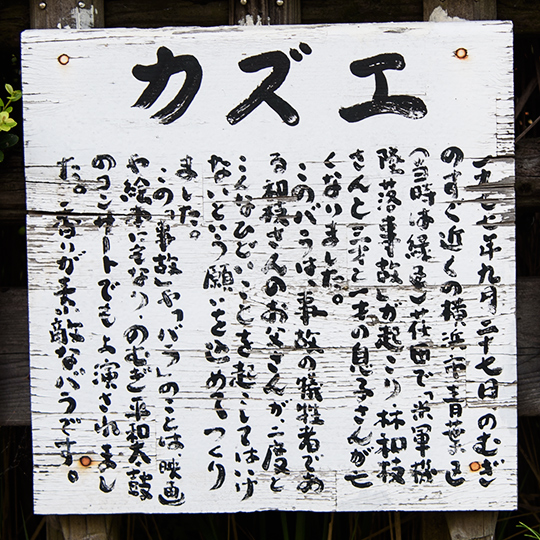 カズエ
一九七七年九月二十七日、のむぎ
のすぐ近くの横浜市青葉区
(当時は緑区)荏田で「米軍機
墜落事故」が起こり、林和枝
さんと三才と一才の息子さんが亡
くなりました。
このバラは、事故の犠牲者であ
る和枝さんのお父さんが、二度と
こんなひどいことを起こしてはいけ
ないという願いを込めてつくり
ました。
この「事故」や「バラ」のことは映画
や絵本にもなり、のむぎ平和太鼓
のコンサートでも上演されまし
た。香りが素敵なバラです。